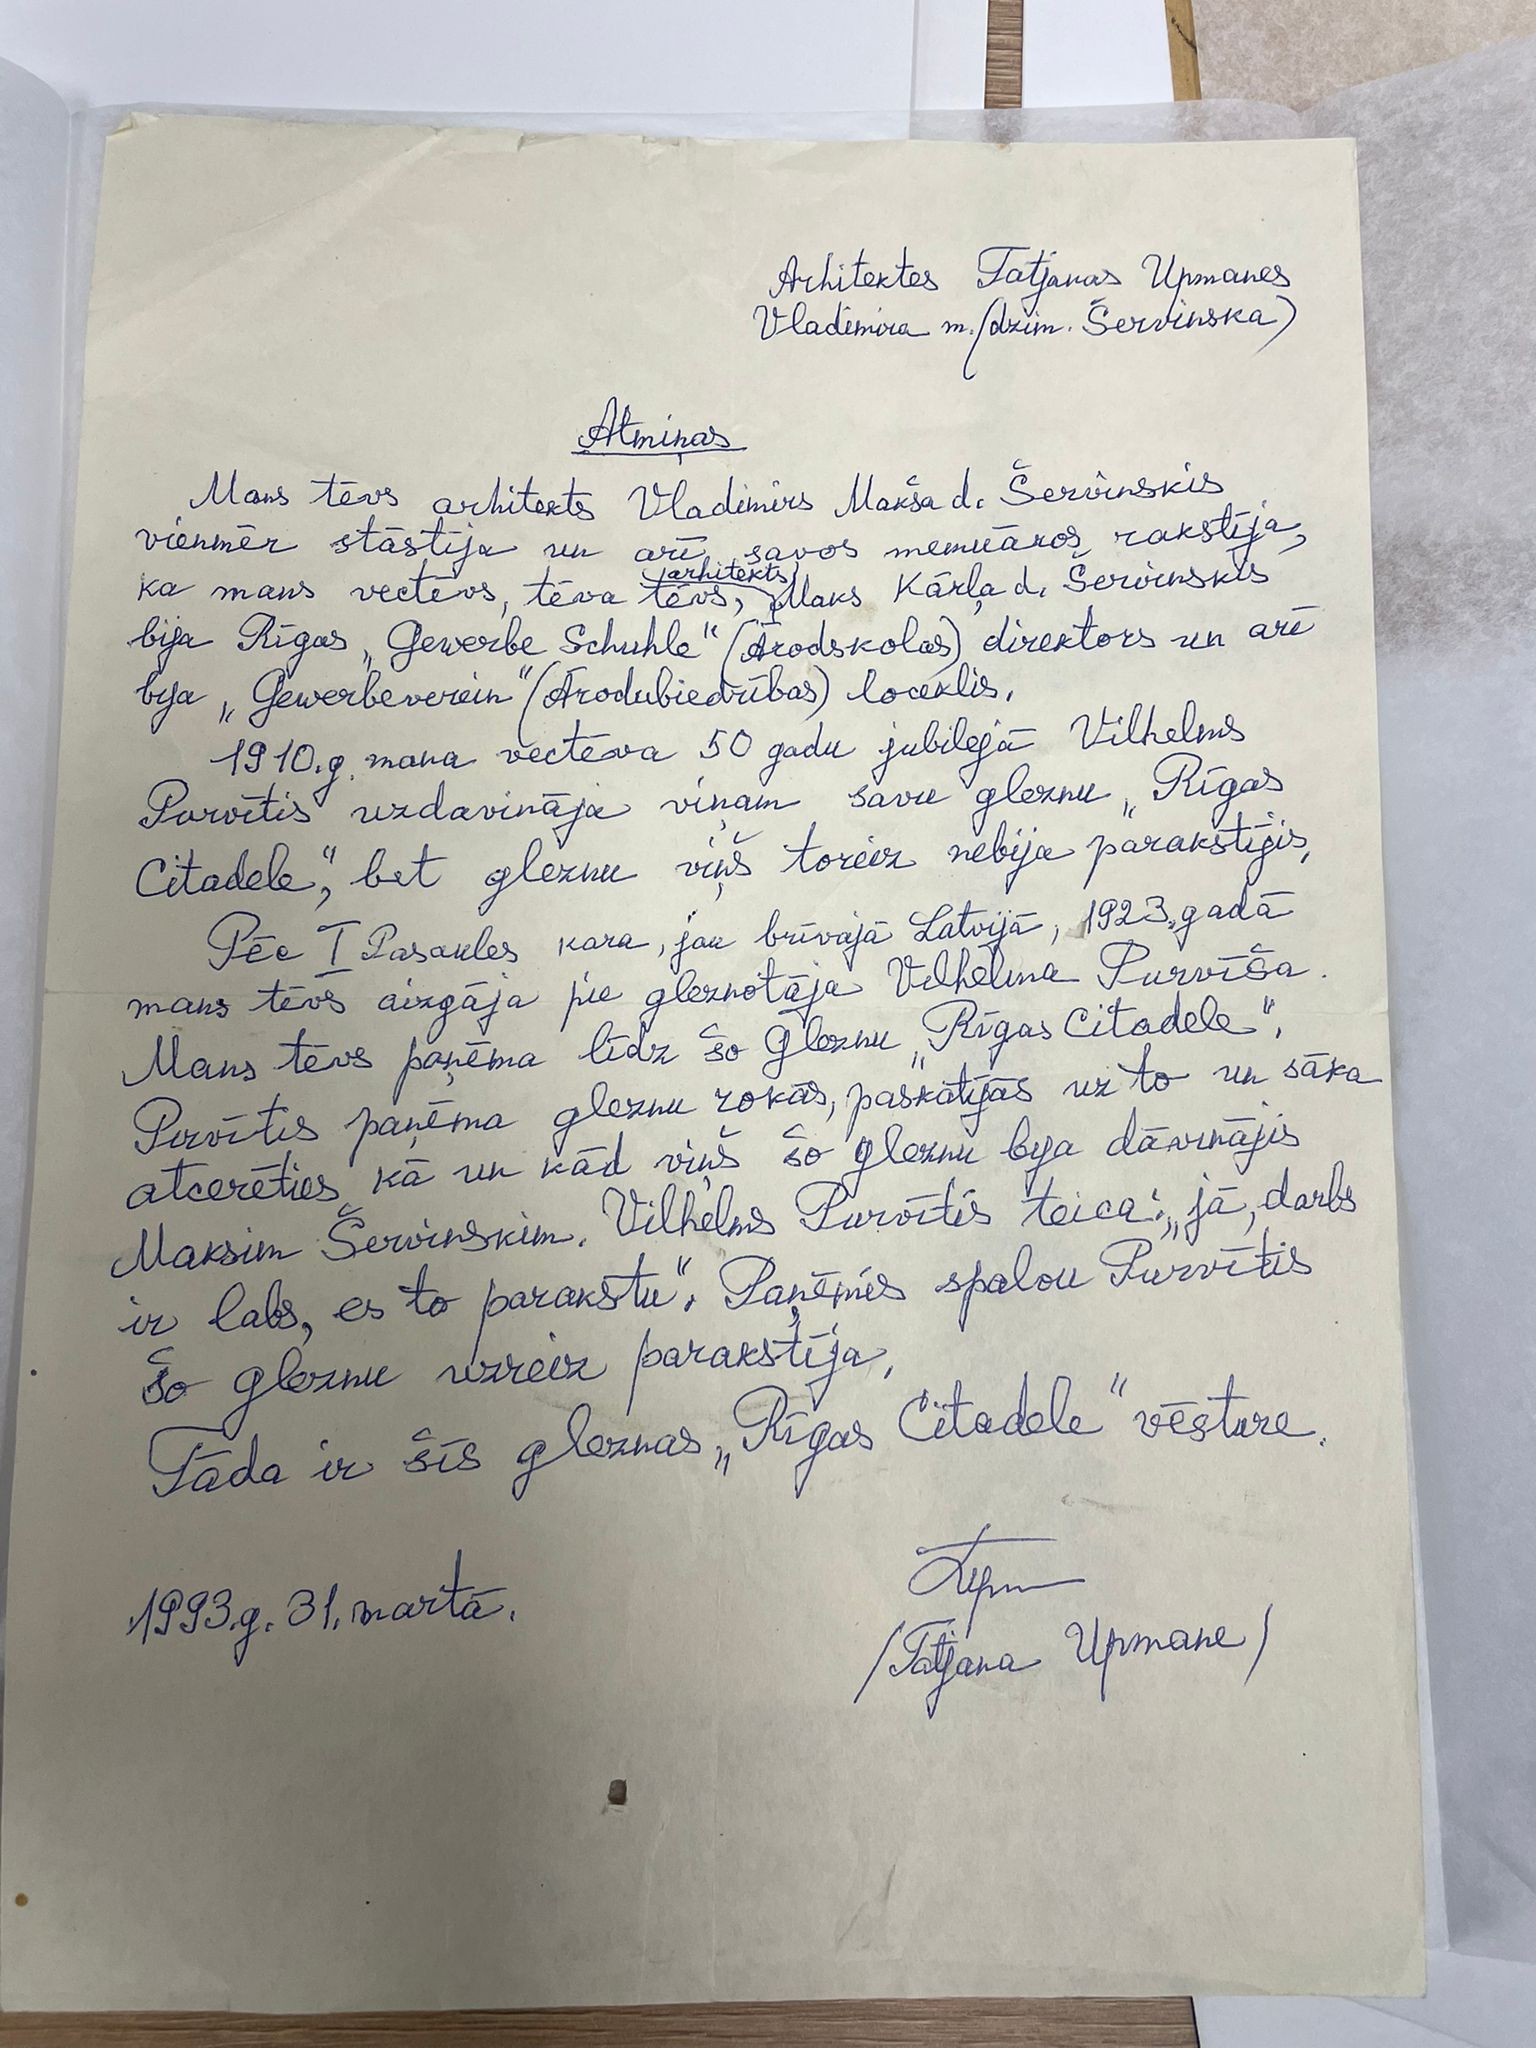 Arhitektes Tatjanas Upmanes
Vladimira m. (dzim. Šervinska)
Atmiņas
Mans tēvs arhitekts Vladimirs Makša d. Šervinskis
vienmēr stāstīja un arī savos memuāros rakstīja,
arhitekts
ka mans vectēvs, tēva tēvs, Maks Kārļa d. Šervinskis
bija Rīgas „Gewerbe Schuhle“ (Arodskolas) direktors un arī
bija „Gewerbeverein“ (Arodubiedrības) loceklis.
1910.g. mana vectēva 50 gadu jubilejā Vilhelms
Purvītis uzdavināja viņam savu gleznu „Rīgas
Citadele“, bet gleznu viņš toreiz nebija parakstījis.
Pēc I Pasaules kara, jau brīvajā Latvijā, 1923.gadā
mans tēvs aizgāja pie gleznotāja Vilhelma Purvīša.
Mans tēvs paņēma līdz šo gleznu „Rīgas Citadele“.
Purvītis paņēma gleznu rokās, paskatījās uz to un sāka
atcerēties kā un kād viņš šo gleznu bija dāvinājis
Maksim Šervinskim. Vilhelms Purvītis teica: „jā, darbs
ir labs, es to parakstu“. Paņēmis spalvu Purvītis
šo gleznu uzreiz parakstīja.
Tāda ir šīs gleznas „Rīgas Citadele“ vēsture.
1993.g. 31. martā.
/Tatjana Upmane/